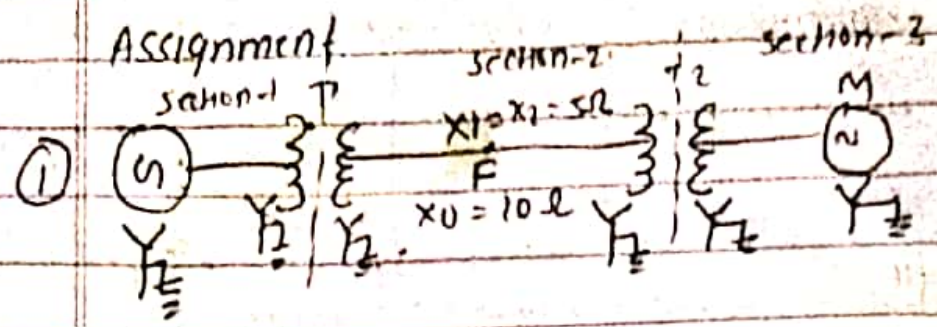 Assignment
section-1 T1 section-2 T2 section-3
① G X1 = X2 = 5Ω M
F
X0 = 10 Ω